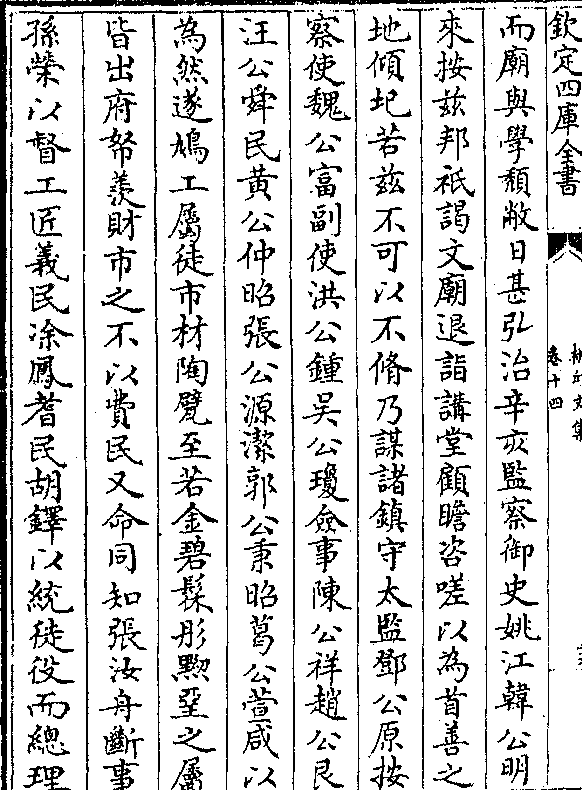 欽定四庫全書
卷十四
而廟與學頽敝日甚弘治辛亥監察御史姚江韓公明
來按兹邦祇謁文廟退詣講堂顧瞻咨嗟以為首善之
地傾圮若兹不可以不脩乃謀諸鎮守太監鄧公原按
察使魏公富副使洪公鍾吳公瓊僉事陳公祥趙公艮
汪公舜民黄公仲昭張公源潔郭公秉昭葛公萱咸以
為然遂鳩工屬徒市材陶甓至若金碧髹彤黝堊之屬
皆出府帑羨財市之不以費民又命同知張汝舟斷事
孫榮以督工匠義民凃鳳耆民胡鐸以統徒役而總理